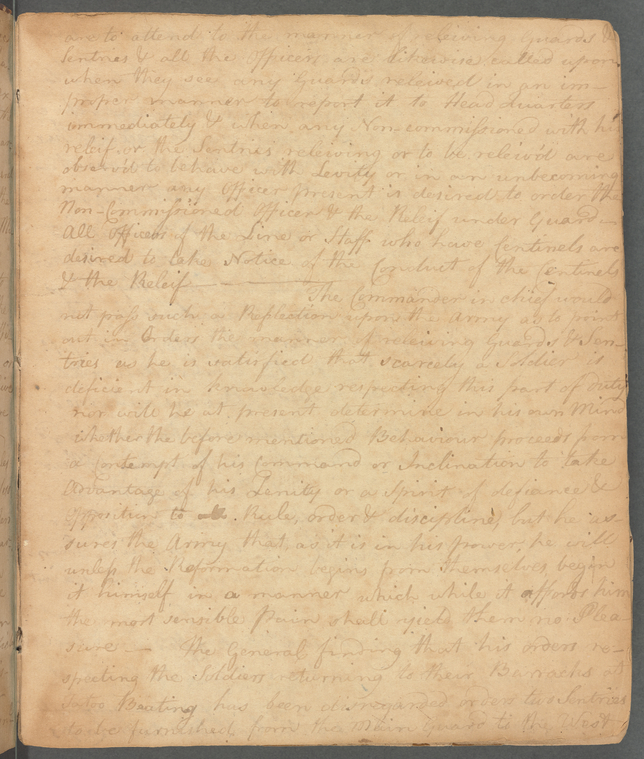 are to attend to the manner of receiving guards &
Sentries & all the Officers are likewise called upon
when they see any Guards received in an im-
proper manner to report it to Head quarters
immediately & when any Non-commissioned with his
releif or the Sentries releiving or to be releiv'd are
observ'd to behave with Levity or in an unbecoming
manner any Officer present is desired to order the
Non-Commissioned Officer & the Releif under Guard
All Officers of the Line or Staff who have Centinels are
desired to take Notice of the Conduct of the Centinels
& the Releif
The Commander in chief would
not pass such a Reflection upon the Army as to point
out in Orders the manner of receiving Guards & Sen-
tries as he is satisfied that scarcely a soldier is
deficient in knowledge respecting this part of duty
nor will he at present determine in his own Mind
whether the before mentioned Behaviour proceeds from
a Contempt of his Command or Inclination to take
Advantage of his Lenity or a Spirit of defiance &
opposition to Rule, order & discipline, but he as-
sures the Army that as it is in his power, he will
unless the Reformation begins from themselves begin
it himself in a manner which while it affords him
the most sensible Pain shall yield them no Plea
sure — The General finding that his orders re-
specting the Soldiers returning to their Barracks at
Beating has been disregarded orders two Sentries
to be furnished from the Main Guard to the West